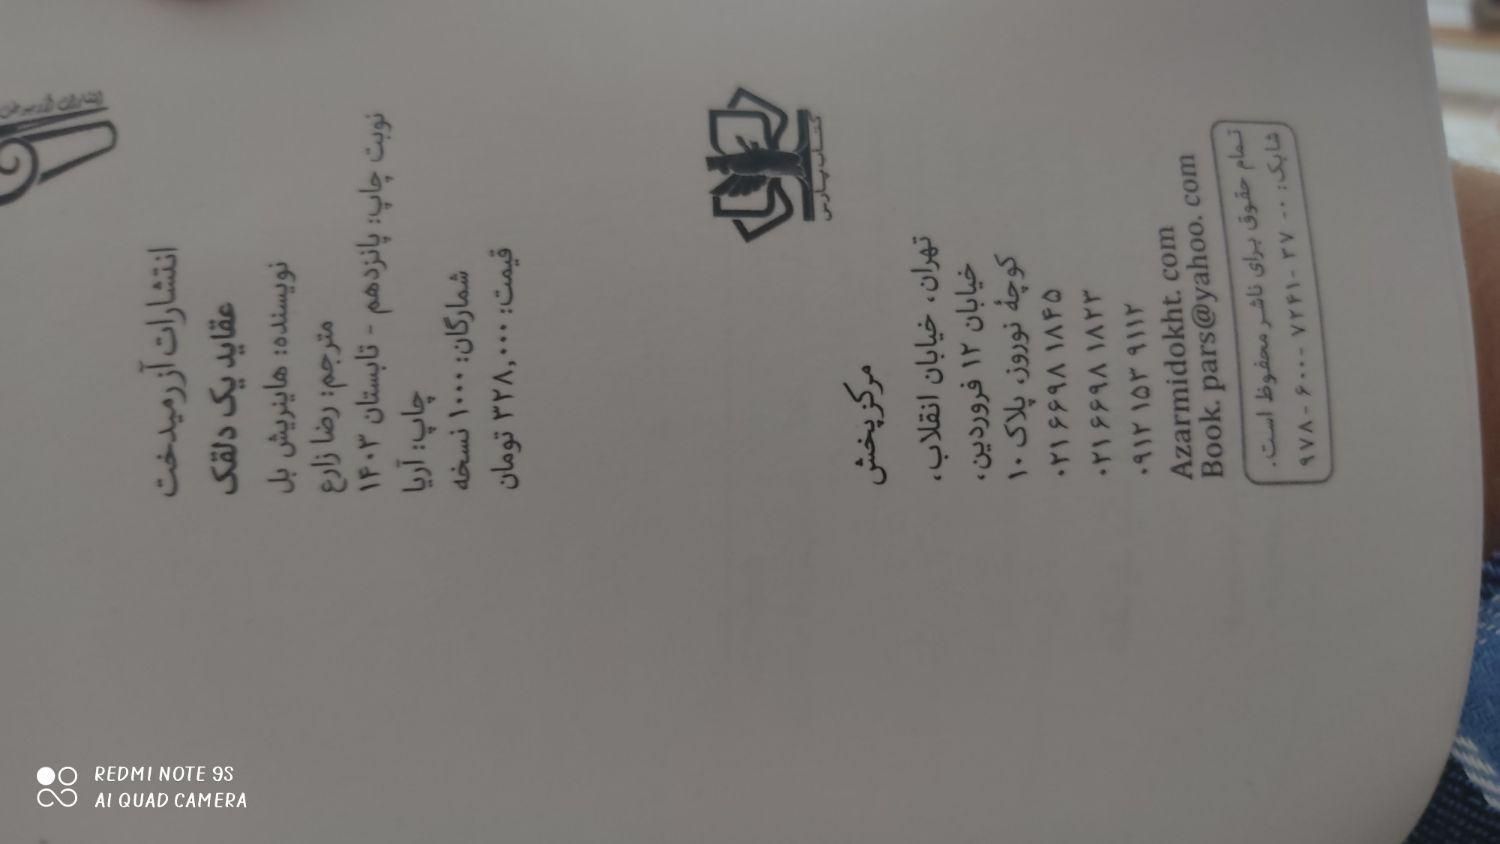 انتشارات آزرمیدخت
عقاید یک دلقک
نویسنده: هاینریش بل
مترجم: رضا زارع
نوبت چاپ: پانزدهم - تابستان ۱۴۰۳
چاپ: آریا
شمارگان: ۱۰۰۰ نسخه
قیمت: ۳۲۸,۰۰۰ تومان
کتاب پارس
مرکز پخش
تهران، خیابان انقلاب،
خیابان ۱۲ فروردین،
کوچۀ نوروز، پلاک ۱۰
۰۲۱ ۶۶۹۸ ۱۸۴۵
۰۲۱ ۶۶۹۸ ۱۸۲۳
۰۹۱۲ ۱۵۳ ۹۱۱۲
Azarmidokht. com
Book. pars@yahoo. com
تمام حقوق برای ناشر محفوظ است.
شابک: ۰- ۲۷ -۷۲۴۱ -۶۰۰ -۹۷۸
REDMI NOTE 9S
AI QUAD CAMERA